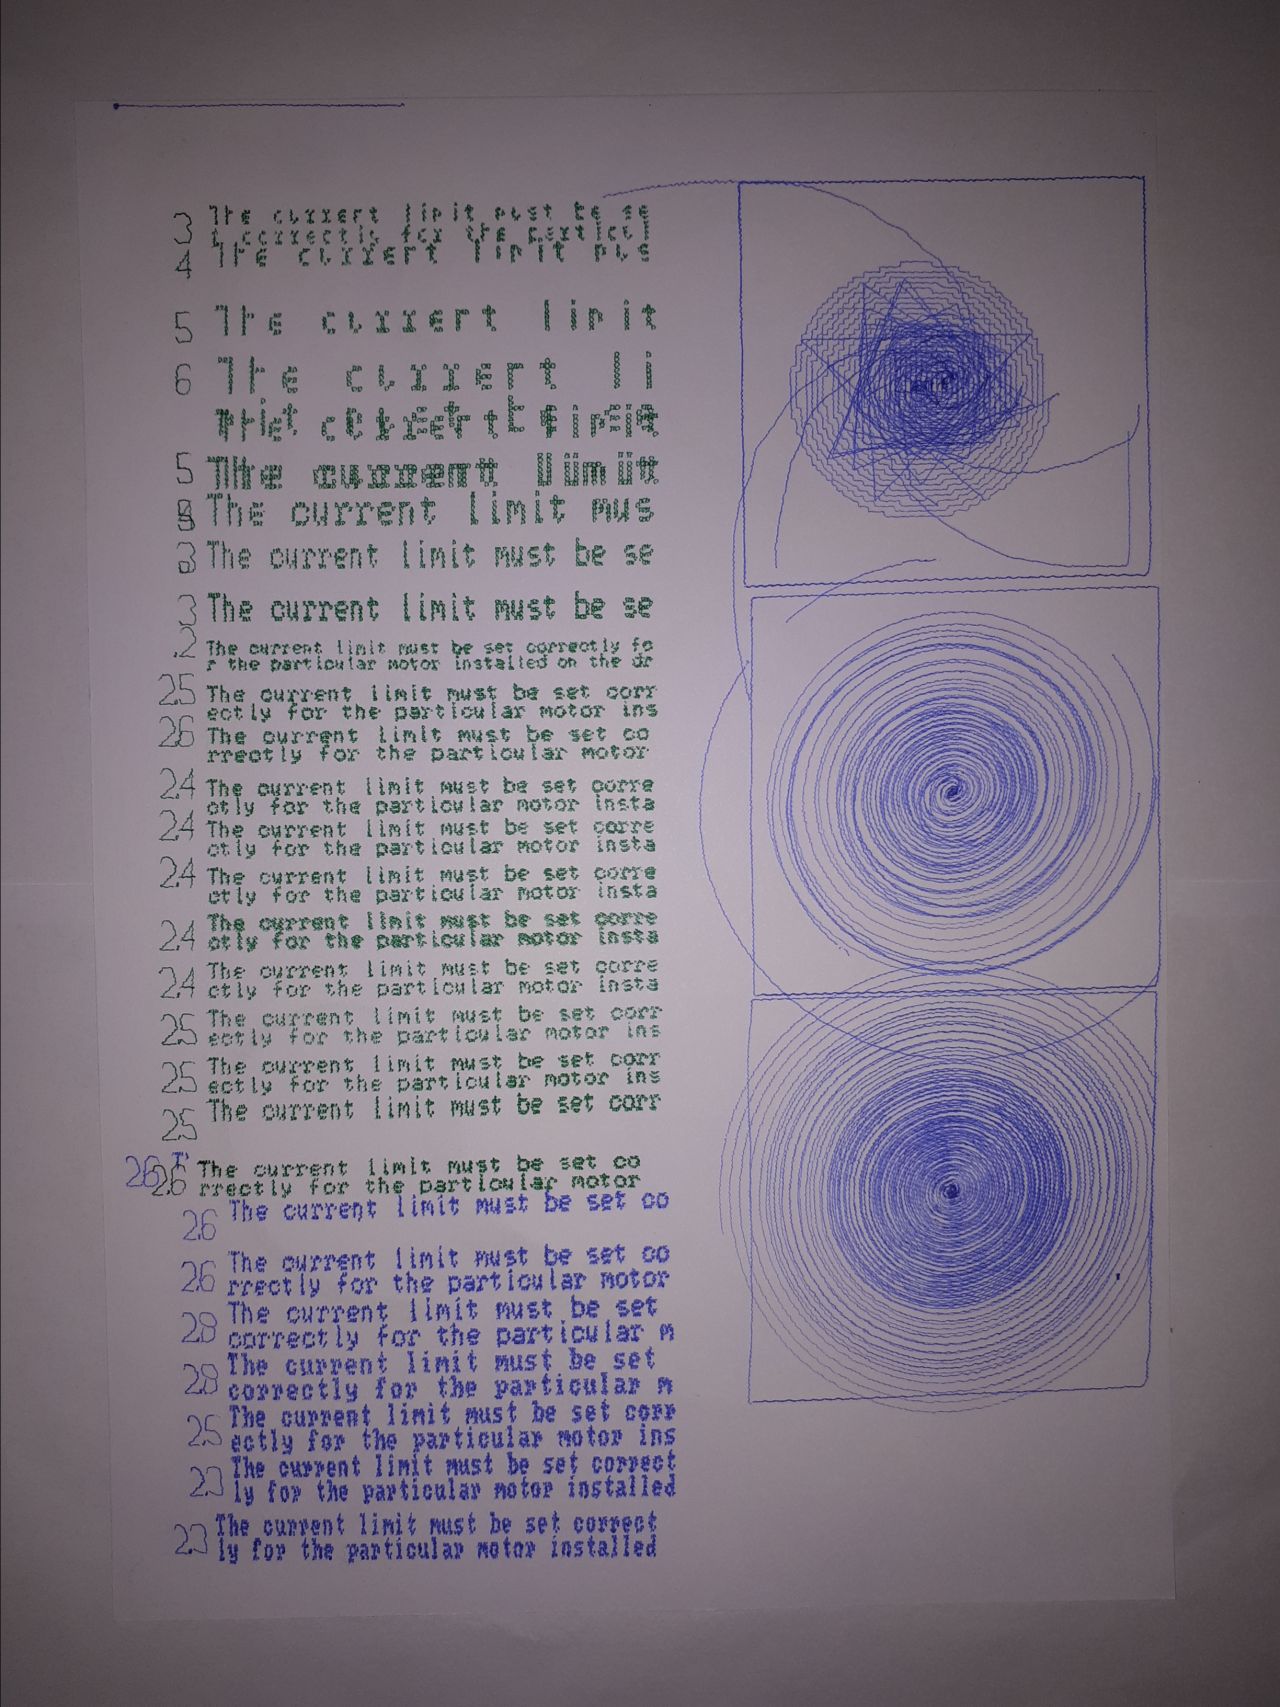 3 The current limit must be se
t correctly for the particul
4 The current limit mus
5 The current limit
6 The current li
5 The current limit
The current limit mus
3 The current limit must be se
3 The current limit must be se
.2 The current limit must be set correctly fo
r the particular motor installed on the dr
2.5 The current limit must be set corr
ectly for the particular motor ins
2.6 The current limit must be set co
rrectly for the particular motor
2.4 The current limit must be set corre
ctly for the particular motor insta
2.4 The current limit must be set corre
ctly for the particular motor insta
2.4 The current limit must be set corre
ctly for the particular motor insta
2.4 The current limit must be set corre
ctly for the particular motor insta
2.4 The current limit must be set corre
ctly for the particular motor insta
2.5 The current limit must be set corr
ectly for the particular motor ins
2.5 The current limit must be set corr
ectly for the particular motor ins
2.5 The current limit must be set corr
2.6 2.6 The current limit must be set co
rrectly for the particular motor
2.6 The current limit must be set co
2.6 The current limit must be set co
rrectly for the particular motor
2.8 The current limit must be set
correctly for the particular m
2.8 The current limit must be set
correctly for the particular m
2.5 The current limit must be set corr
ectly for the particular motor ins
2.3 The current limit must be set correct
ly for the particular motor installed
2.3 The current limit must be set correct
ly for the particular motor installed